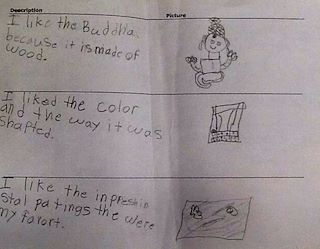 Description Picture
I like the Buddha
because it is made of
wood.
I liked the color
and the way it was
shapted.
I like the inpreshin
stal patings the were
my favort.